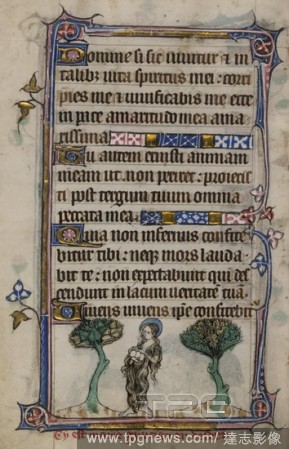 Domine si sic vivitur et in
talibus vita spiritus mei: corri
pies me et vivificabis me ecce
in pace amaritudo mea ama
rissima
Tu autem eruisti animam
meam ut non periret: proiecis
ti post tergum tuum omnia
peccata mea
Quia non infernus confite
bitur tibi: neqz mors lauda
bit te: non expectabunt qui des
cendunt in lacum veritatem tuā
Vivens vivens ip̄e confitebit᷑
TPG
www.tpgnews.com/達志影像